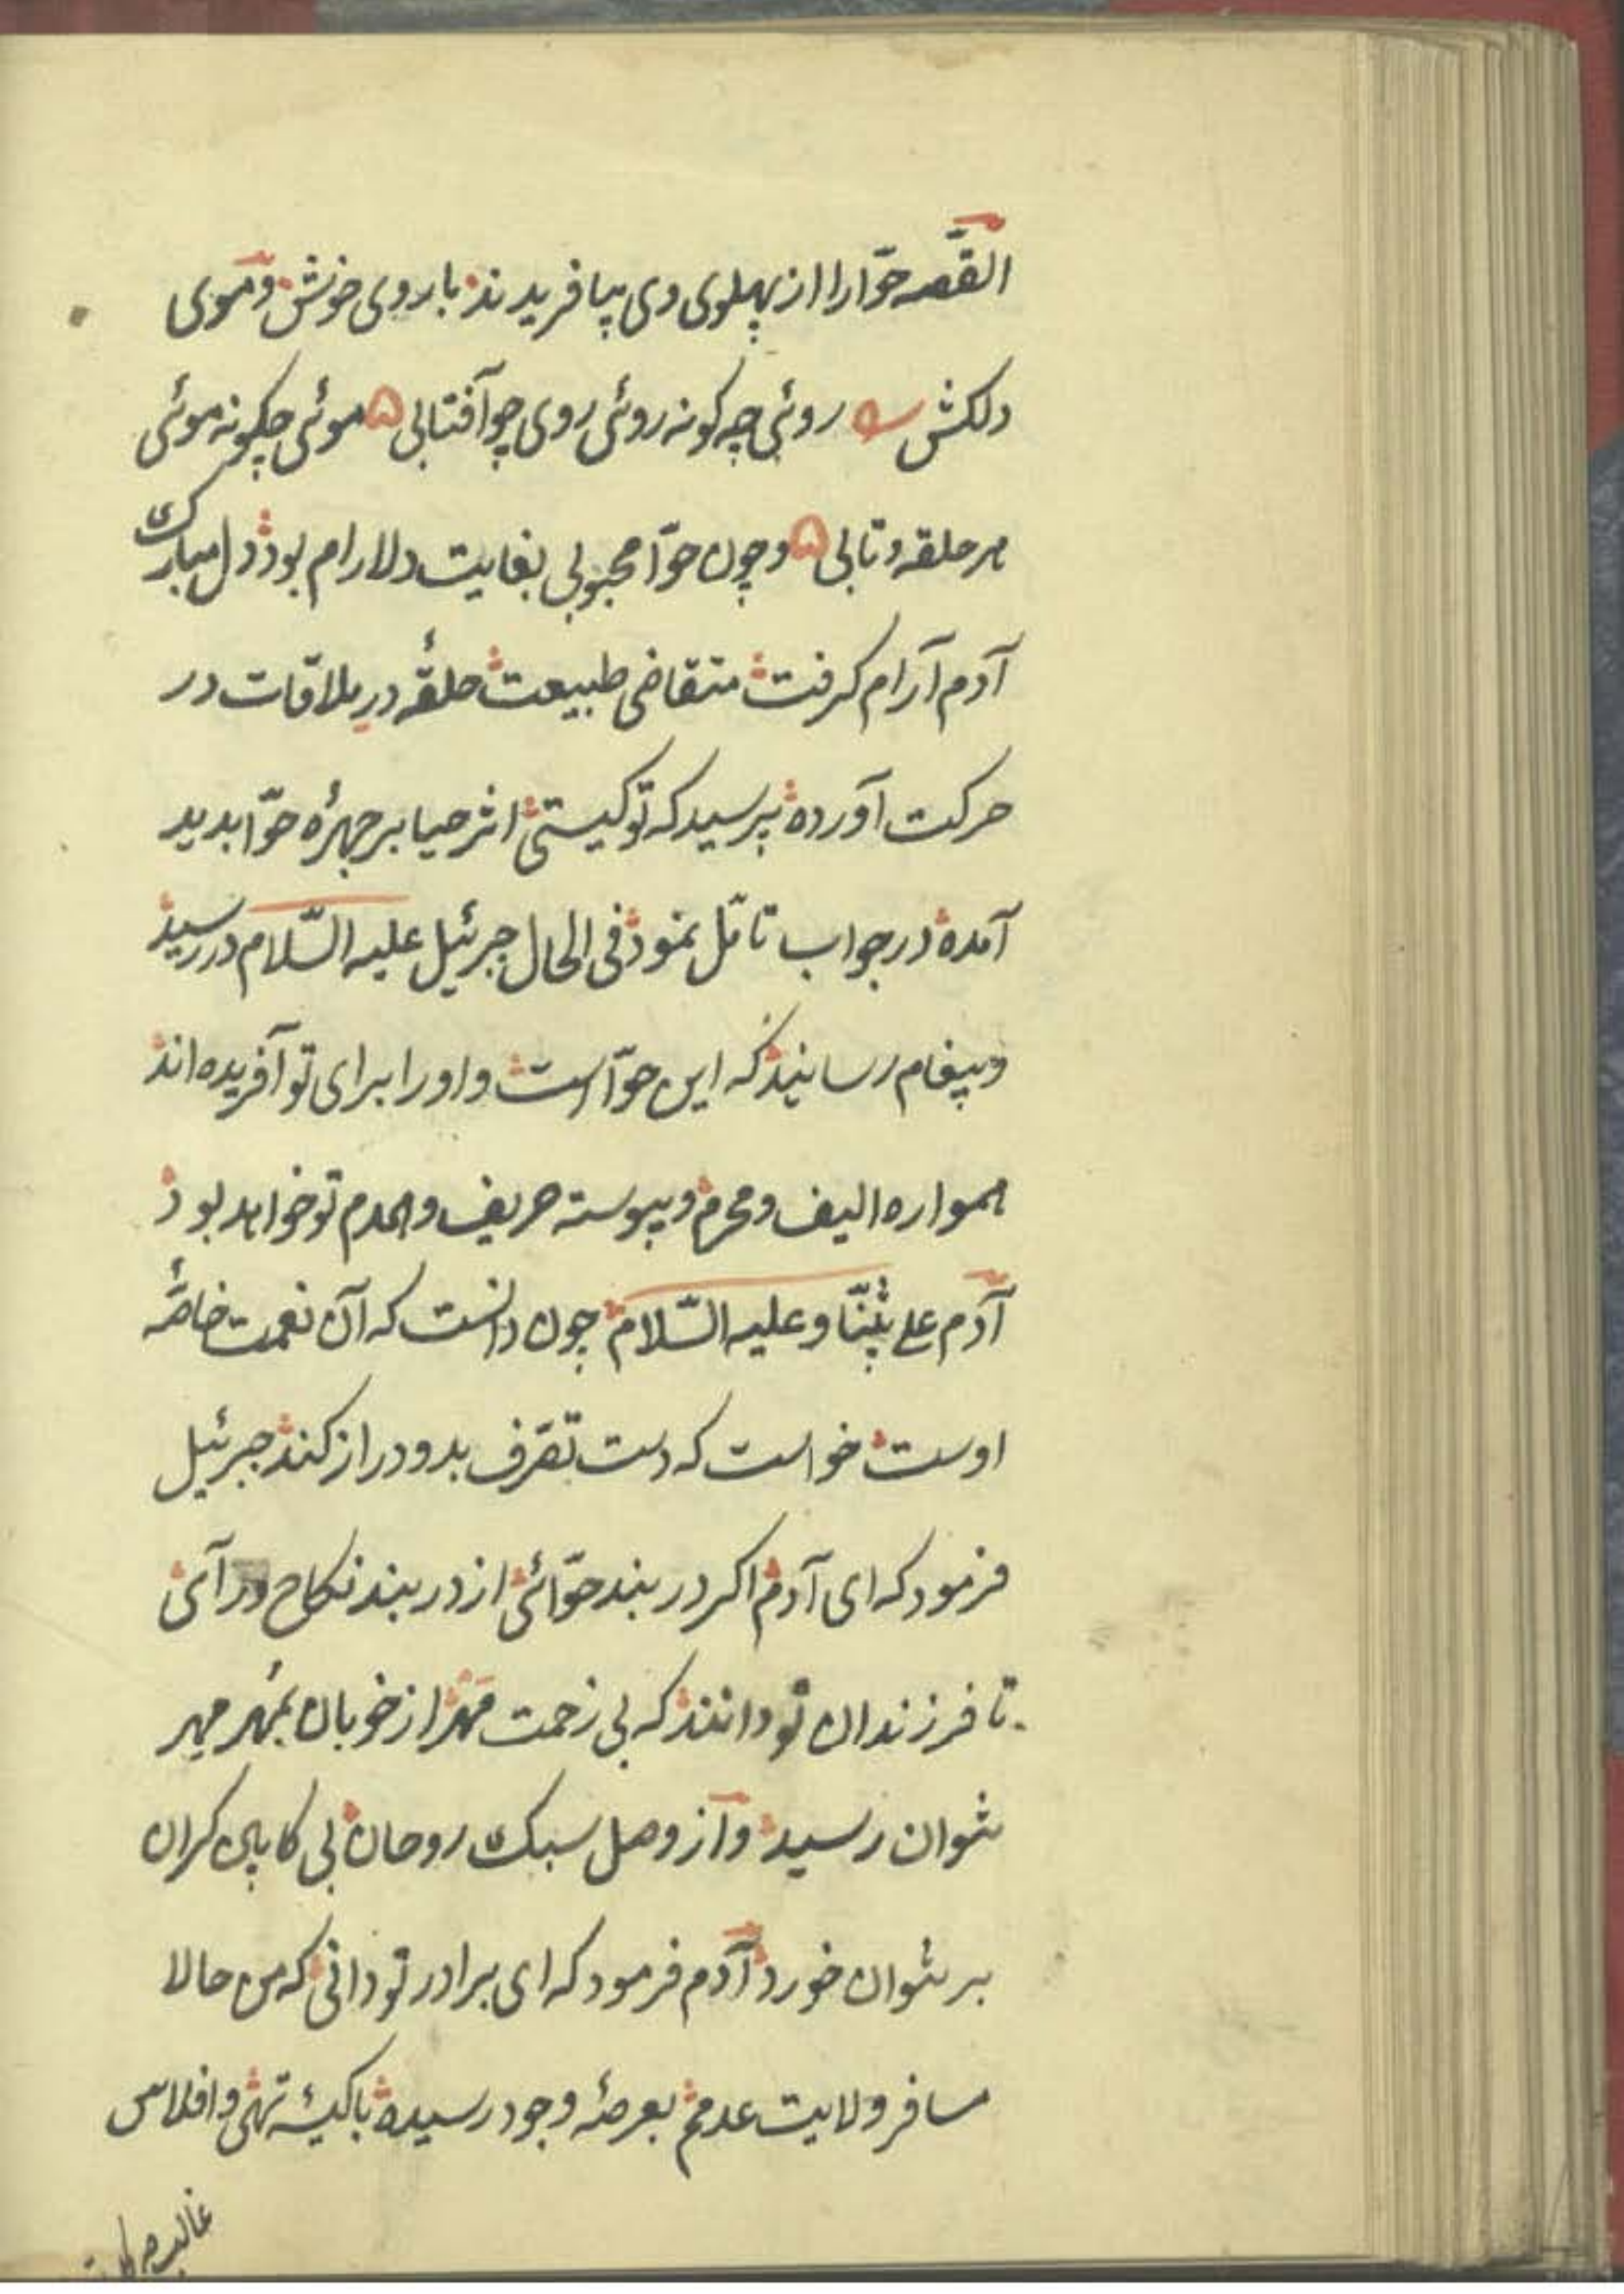 القصّه حوّا را از پهلوی وی بیافریدند با روی خوش و موی
دلکش روئی چه کونه روئی روی چو آفتابی موئی چکونه موئی
هر حلقه و تابی و چون حوّا محبوبی بغایت دلارام بود دل مبارک
آدم آرام کرفت متقاضی طبیعت حلقهٔ در ملاقات در
حرکت آورده پرسید که تو کیستی اثر حیا بر چهرهٔ حوّا بدید
آمده در جواب تامّل نمود فی الحال جبرئیل علیه السّلام در رسید
و پیغام رسانید که این حوّا است و او را برای تو آفریده اند
همواره الیف و محرم و پیوسته حریف و همدم تو خواهد بود
آدم علی نبیّنا و علیه السّلام چون دانست که آن نعمت خاصّهٔ
اوست خواست که دست تصّرف بدو دراز کند جبرئیل
فرمود که ای آدم اکر در بند حوّائی از در بند نکاح در آی
تا فرزندان تو دانند که بی زحمت مهر از خوبان بمُهر مهر
نتوان رسید و از وصل سبک روحان بی کابین کران
بر نتوان خورد آدم فرمود که ای برادر تو دانی که من حالا
مسافر ولایت عدمم بعرصهٔ وجود رسیده با کیسهٔ تهی و افلاس